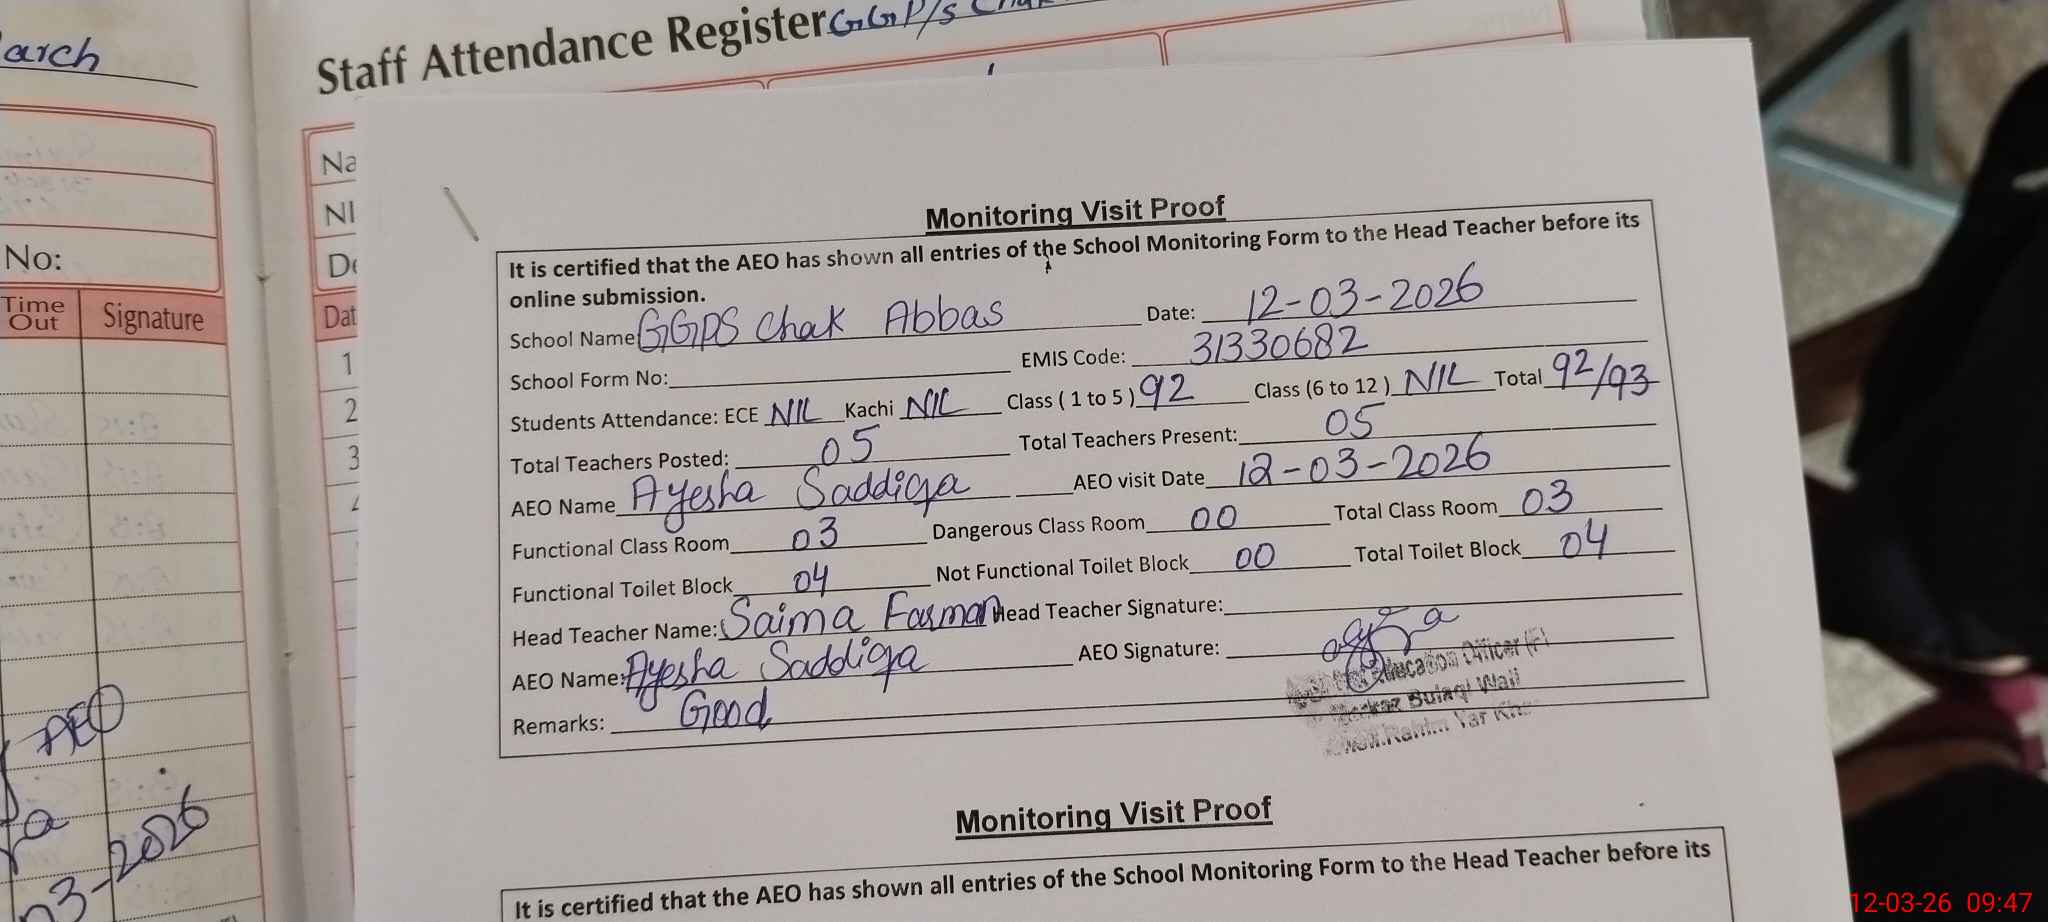 arch
Staff Attendance Register GGP/S Chak
No:
Time Out Signature
Na
NI
De
Dat
1
2
3
AEO
03-2026
Monitoring Visit Proof
It is certified that the AEO has shown all entries of the School Monitoring Form to the Head Teacher before its
online submission.
School Name GGPS Chak Abbas Date: 12-03-2026
School Form No: EMIS Code: 31330682
Students Attendance: ECE NIL Kachi NIL Class ( 1 to 5 ) 92 Class (6 to 12 ) NIL Total 92/93
Total Teachers Posted: 05 Total Teachers Present: 05
AEO Name Ayesha Saddiqa AEO visit Date 12-03-2026
Functional Class Room 03 Dangerous Class Room 00 Total Class Room 03
Functional Toilet Block 04 Not Functional Toilet Block 00 Total Toilet Block 04
Head Teacher Name: Saima Farman Head Teacher Signature:
AEO Name: Ayesha Saddiqa AEO Signature:
Education Officer (F)
Markaz Bulaqi Wali
Rahim Yar Kha
Remarks: Good
Monitoring Visit Proof
It is certified that the AEO has shown all entries of the School Monitoring Form to the Head Teacher before its
12-03-26 09:47